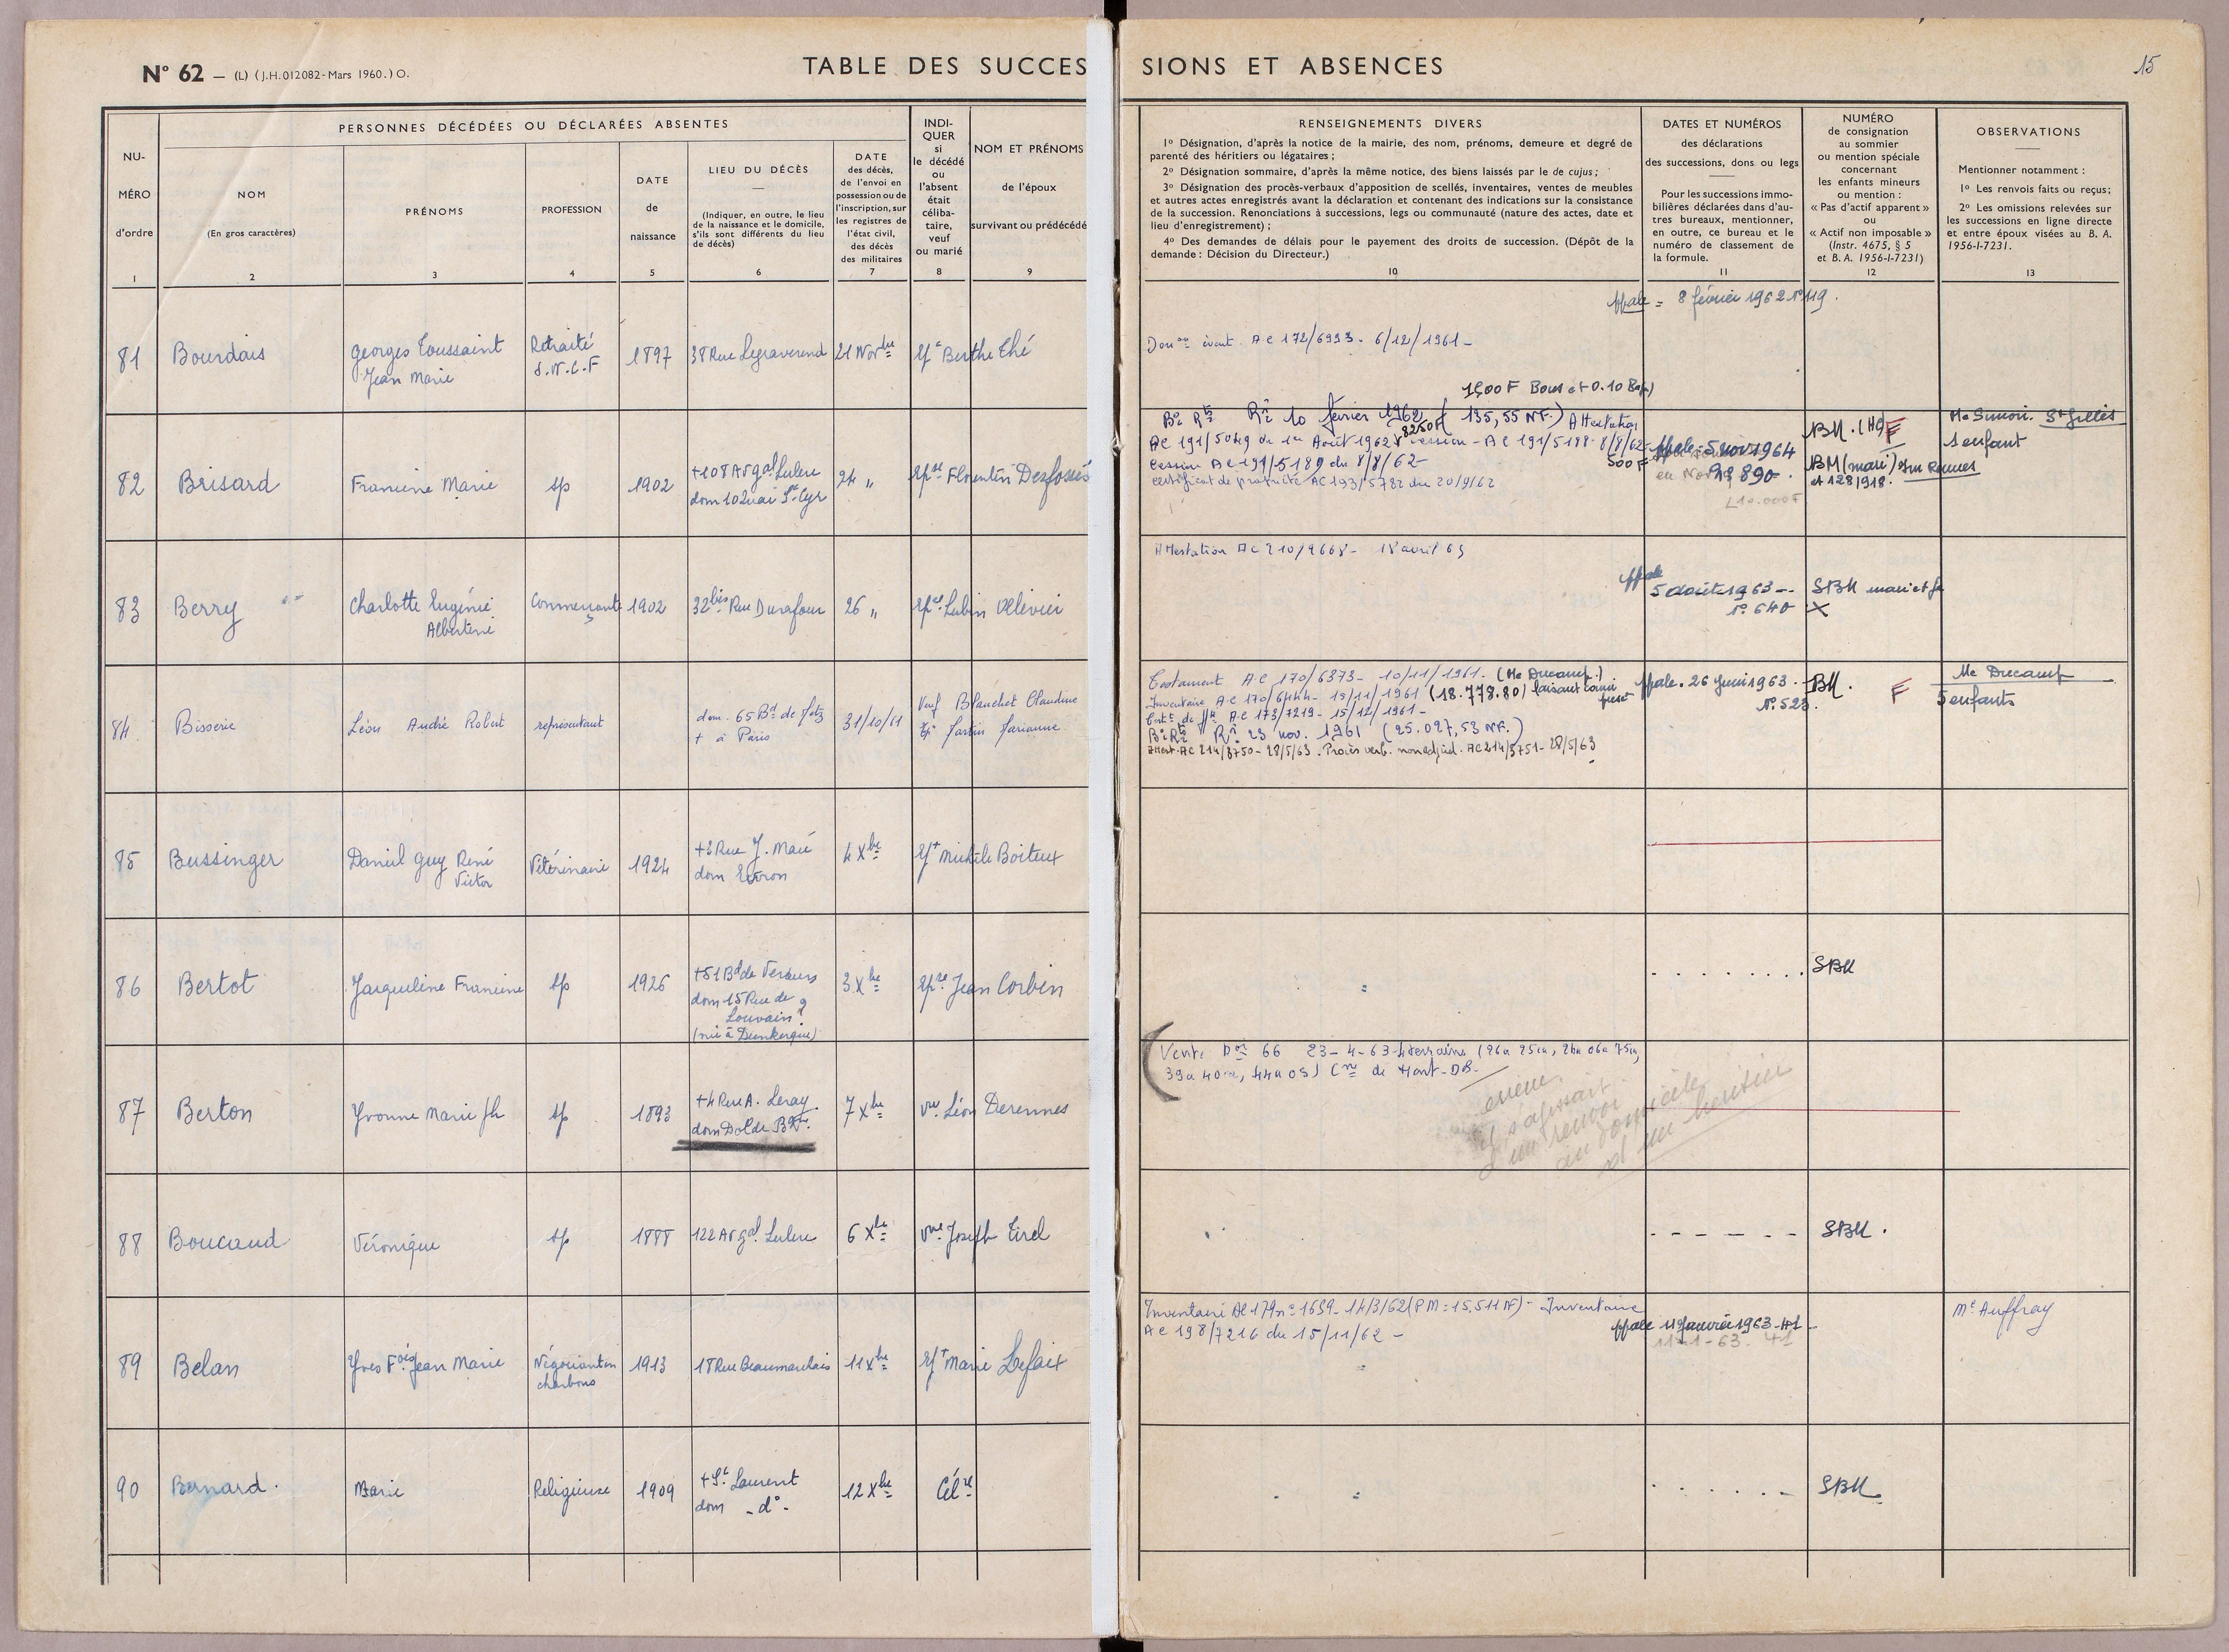 N° 62 — (L) (J.H. 012082 - Mars 1960.) O.
TABLE DES SUCCES SIONS ET ABSENCES
15
PERSONNES DÉCÉDÉES OU DÉCLARÉES ABSENTES
NU-
MÉRO
d'ordre
1
NOM
(En gros caractères)
2
PRÉNOMS
3
PROFESSION
4
DATE
de
naissance
5
LIEU DU DÉCÈS
(Indiquer, en outre, le lieu
de la naissance et le domicile,
s'ils sont différents du lieu
de décès)
6
DATE
des décès,
de l'envoi en
possession ou de
l'inscription, sur
les registres de
l'état civil,
des décès
des militaires
7
INDI-
QUER
si
le décédé
ou
l'absent
était
céliba-
taire,
veuf
ou marié
8
NOM ET PRÉNOMS
de l'époux
survivant ou prédécédé
9
RENSEIGNEMENTS DIVERS
1° Désignation, d'après la notice de la mairie, des nom, prénoms, demeure et degré de
parenté des héritiers ou légataires ;
2° Désignation sommaire, d'après la même notice, des biens laissés par le de cujus ;
3° Désignation des procès-verbaux d'apposition de scellés, inventaires, ventes de meubles
et autres actes enregistrés avant la déclaration et contenant des indications sur la consistance
de la succession. Renonciations à successions, legs ou communauté (nature des actes, date et
lieu d'enregistrement) ;
4° Des demandes de délais pour le payement des droits de succession. (Dépôt de la
demande : Décision du Directeur.)
10
DATES ET NUMÉROS
des déclarations
des successions, dons ou legs
Pour les successions immo-
bilières déclarées dans d'au-
tres bureaux, mentionner,
en outre, ce bureau et le
numéro de classement de
la formule.
11
NUMÉRO
de consignation
au sommier
ou mention spéciale
concernant
les enfants mineurs
ou mention :
« Pas d'actif apparent »
ou
« Actif non imposable »
(Instr. 4675, § 5
et B. A. 1956-I-7231)
12
OBSERVATIONS
Mentionner notamment :
1° Les renvois faits ou reçus;
2° Les omissions relevées sur
les successions en ligne directe
et entre époux visées au B. A.
1956-I-7231.
13
8 février 1962 n° 119.
81 Bourdais Georges Toussaint Retraité 1897 38 Rue Legraverend 21 Novbre Berthe Thé
Jean Marie S.N.C.F
AC 172/6993 - 6/12/1961 -
10 février 1962 (135,55 NF.) Attestation
82 Brisard Francine Marie sp 1902 +108 Av gal Leclerc 24 " Florentin Desfossés
dom 10 Quai St Cyr
AC 191/5049 du 1er Août 1962 cession - AC 191/5188 - 8/8/62
Cession AC 191/5189 du 8/8/62 -
500 F
certificat de propriété AC 193/5782 du 20/9/62
5 nov 1964
n° 890
BM (mari)
et 128/918.
Me Simon. St Gilles
1 enfant
83 Berry Charlotte Eugénie Commerçante 1902 32bis Rue Durafour 26 " Lubin
Albertine
Attestation AC 210/2668 - 18 avril 63
5 août 1963 --
n° 640
SBM mari et fe
X
84 Bisserie Léon André Robert représentant dom. 65 Bd de Metz 31/10/61 Veuf Blanchet Claudine
+ à Paris
Testament AC 170/6373 - 10/11/1961. (Me Ducamp.)
Inventaire AC 170/6444 - 13/11/1961 (18.778.80)
AC 173/7219 - 15/12/1961 -
23 nov. 1961 (25.027,53 NF.)
Attest. AC 214/3750 - 28/5/63. Procès verb. non adjud. AC 214/3751 - 28/5/63
26 Juin 1963
N° 523.
BM. F
Me Ducamp
5 enfants
85 Bussinger Daniel Guy René Vétérinaire 1924 4 Xbre Michèle Boiteux
Victor
dom Evron
86 Bertot Jacqueline Francine sp 1926 +51 Bd de Verdun 3 Xbre Jean Corbin
dom 15 Rue de
Louvain
(née à Dunkerque)
SBM
87 Berton Yvonne Marie Jh sp 1893 +4 Rue A. Leray 7 Xbre vve Léon Derennes
dom Dol de Bgne.
Vente 66 23-4-63 4 terrains
39a 40ca, 44a 05) Cne de Mont-Dol
erreur
il s'agissait
d'un renvoi
au domicile
d'un héritier
88 Boucaud Véronique sp 1888 122 Av gal. Leclerc 6 Xbre vve Joseph Tirel
SBM.
89 Belan Yves Fois Jean Marie Négociant en 1913 18 Rue Beaumarchais 11 Xbre Marie Lefaix
charbons
Inventaire AC 179 n° 1659 - 14/3/62 (PM : 15,511 NF) - Inventaire
AC 198/7216 du 15/11/62 -
11 Janvier 1963 - 41 -
11-1-63. 41
Me Auffray
90 Bernard. Marie Religieuse 1909 + St Laurent 12 Xbre Célre
dom -d°-
SBM